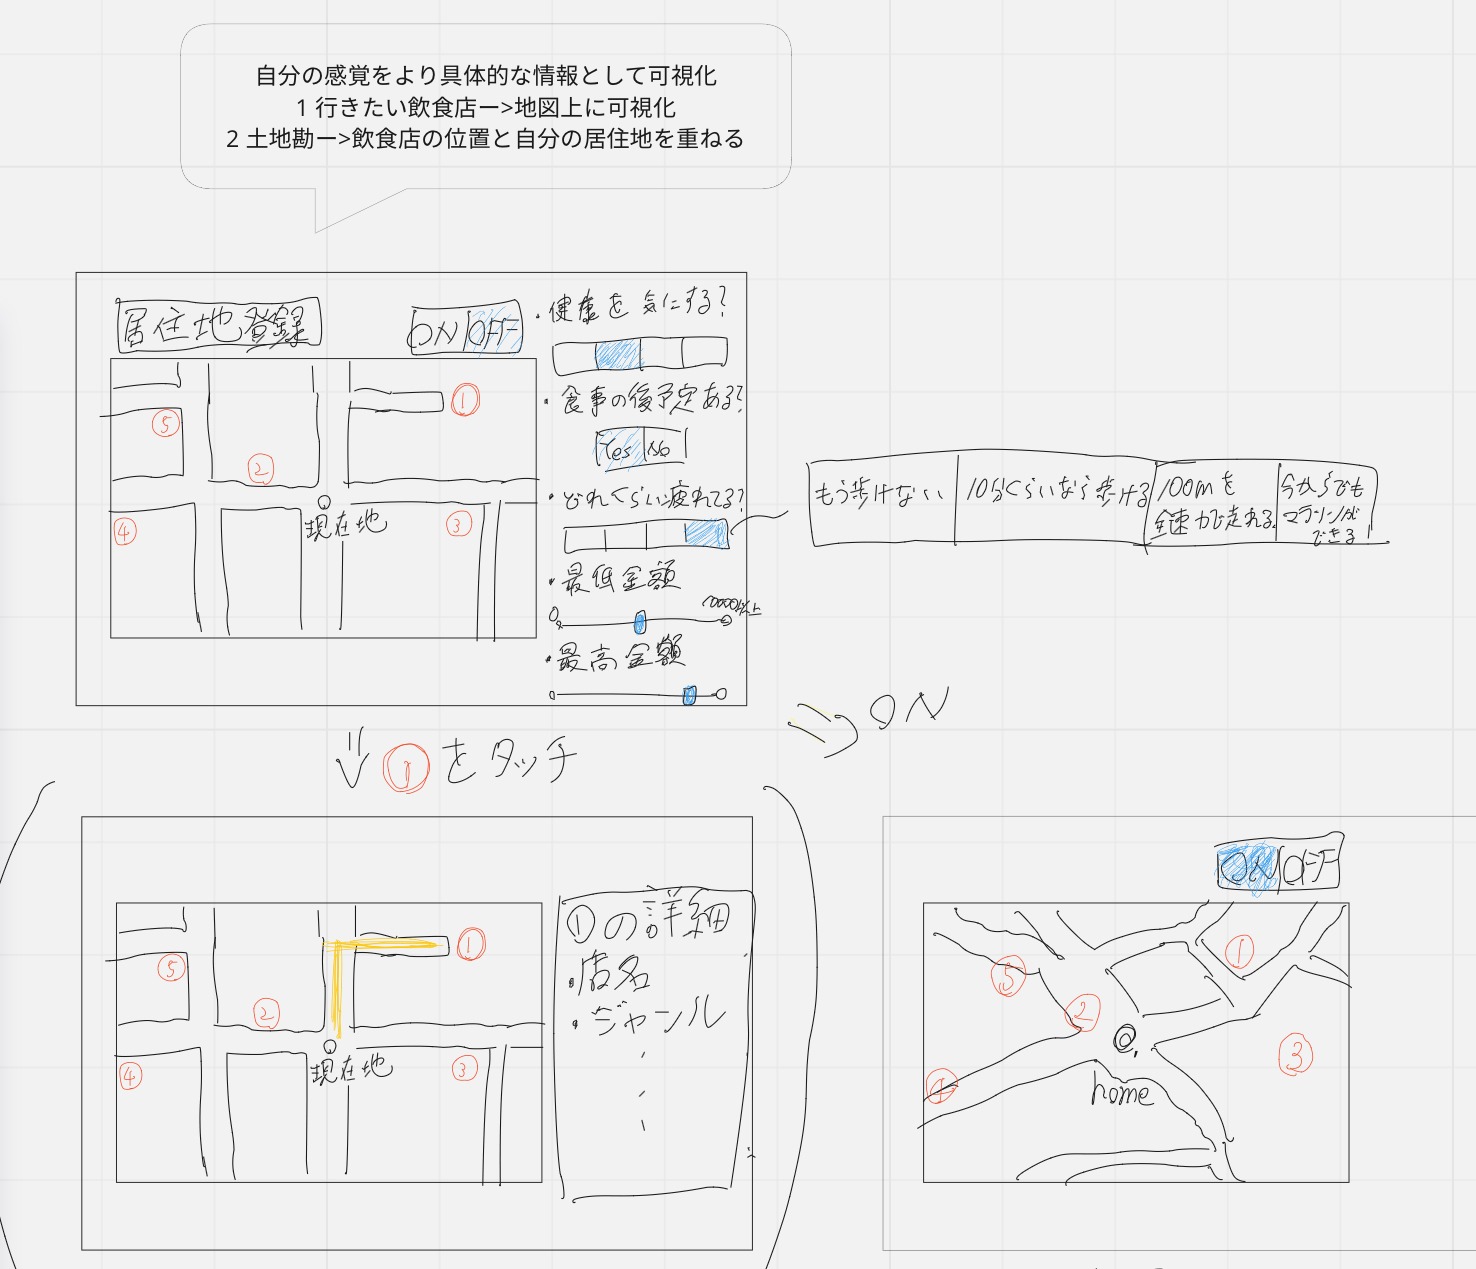 自分の感覚をより具体的な情報として可視化
1 行きたい飲食店ー>地図上に可視化
2 土地勘ー>飲食店の位置と自分の居住地を重ねる
居住地登録
ON OFF
・健康を気にする?
・食事の後予定ある?
Yes No
・どれくらい疲れてる?
もう歩けない
10分くらいなら歩ける
100mを
全速力で走れる
今からでも
マラソンが
できる
・最低金額
・最高金額
①
⑤
②
現在地
③
④
①をタッチ
ON
①の詳細
・店名
・ジャンル
①
⑤
②
現在地
③
④
ON OFF
①
⑤
②
③
④
home